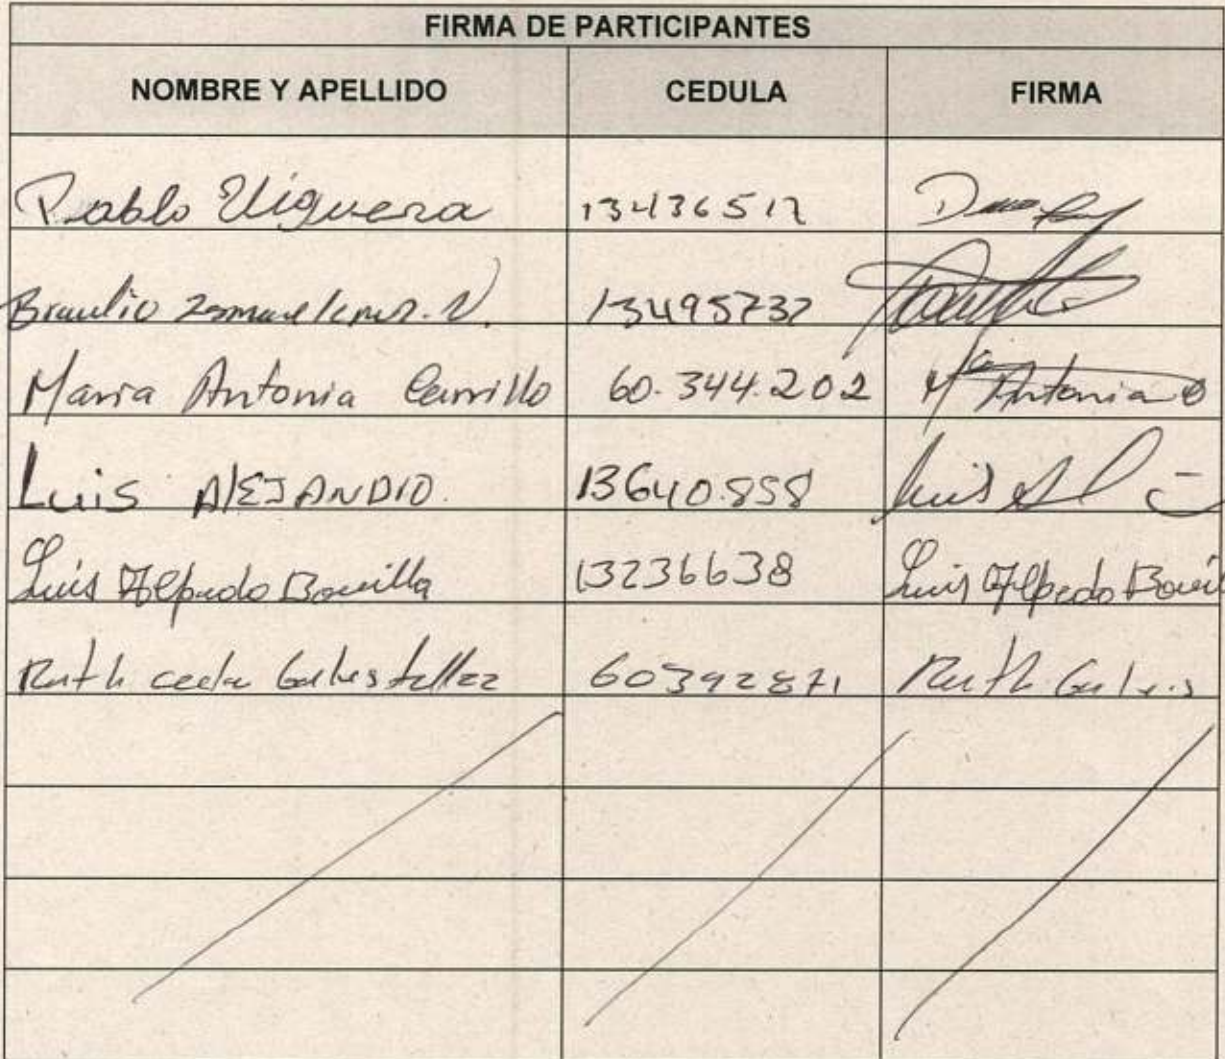 FIRMA DE PARTICIPANTES
NOMBRE Y APELLIDO CEDULA FIRMA
Pablo Viguera 13436512
Braulio 13495732
Maria Antonia Carrillo 60.344.202 Mª Antonia
Luis AlEJANDIO. 13640.858 Luis
Luis Alfredo Bonilla 13236638 Luis Alfredo
Ruth 60392871 Ruth